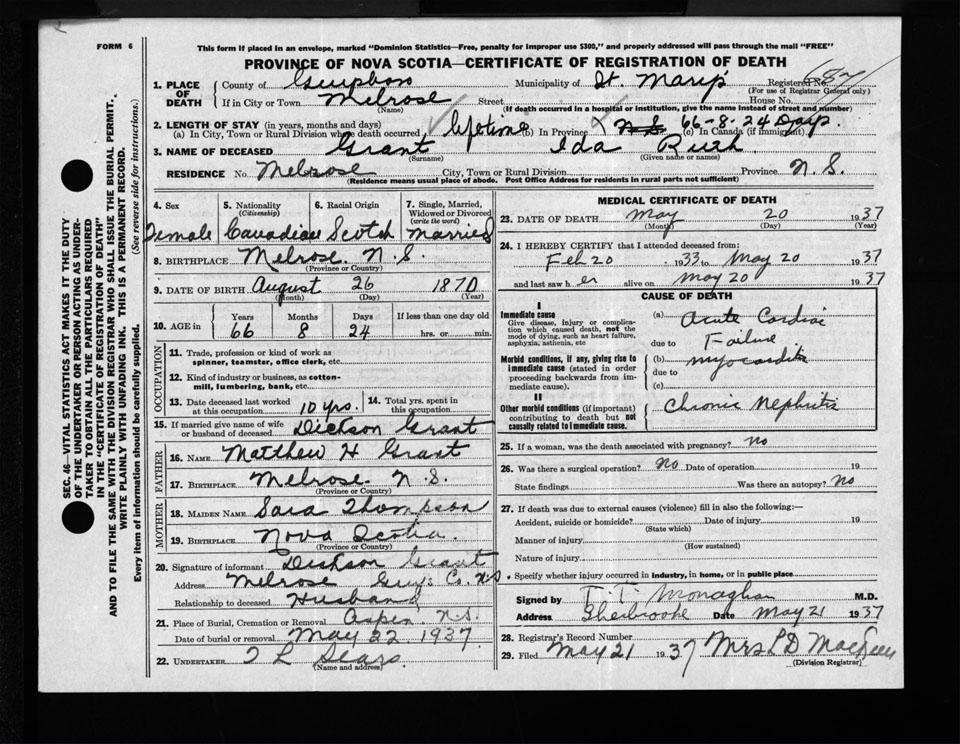 FORM 6
This form if placed in an envelope, marked "Dominion Statistics—Free, penalty for improper use $300," and properly addressed will pass through the mail "FREE"
PROVINCE OF NOVA SCOTIA—CERTIFICATE OF REGISTRATION OF DEATH
SEC. 46—VITAL STATISTICS ACT MAKES IT THE DUTY
OF THE UNDERTAKER OR PERSON ACTING AS UNDER-
TAKER TO OBTAIN ALL THE PARTICULARS REQUIRED
IN THE "CERTIFICATE OF REGISTRATION OF DEATH"
AND TO FILE THE SAME WITH THE DIVISION REGISTRAR WHO SHALL ISSUE THE BURIAL PERMIT.
WRITE PLAINLY WITH UNFADING INK. THIS IS A PERMANENT RECORD.
Every item of information should be carefully supplied. (See reverse side for instructions.)
1. PLACE OF DEATH
County of Guysboro Municipality of St. Mary's Registered No.
(For use of Registrar General only)
If in City or Town Melrose Street House No.
(Name) (If death occurred in a hospital or institution, give the name instead of street and number)
2. LENGTH OF STAY (in years, months and days)
(a) In City, Town or Rural Division where death occurred lifetime (b) In Province N S (c) In Canada (if immigrant) 66-8-24 Days.
3. NAME OF DECEASED Grant Ida Ruth
(Surname) (Given name or names)
RESIDENCE No. Melrose City, Town or Rural Division Province N. S.
(Residence means usual place of abode. Post Office Address for residents in rural parts not sufficient)
4. Sex 5. Nationality (Citizenship) 6. Racial Origin 7. Single, Married, Widowed or Divorced (write the word)
Female Canadian Scotch Married
8. BIRTHPLACE Melrose. N. S.
(Province or Country)
9. DATE OF BIRTH August 26 1870
(Month) (Day) (Year)
10. AGE in Years Months Days If less than one day old
66 8 24 hrs. or min.
OCCUPATION
11. Trade, profession or kind of work as
spinner, teamster, office clerk, etc.
12. Kind of industry or business, as cotton-
mill, lumbering, bank, etc.
13. Date deceased last worked at this occupation 10 yrs. 14. Total yrs. spent in this occupation
15. If married give name of wife or husband of deceased Dickson Grant
FATHER
16. NAME Matthew H Grant
17. BIRTHPLACE Melrose. N.S.
(Province or Country)
MOTHER
18. MAIDEN NAME Sara Thompson
19. BIRTHPLACE Nova Scotia.
(Province or Country)
20. Signature of informant Dickson Grant
Address Melrose Guys. Co. N.S.
Relationship to deceased Husband
21. Place of Burial, Cremation or Removal Aspen, N.S.
Date of burial or removal May 22 1937
22. UNDERTAKER T L Sears.
(Name and address)
MEDICAL CERTIFICATE OF DEATH
23. DATE OF DEATH May 20 1937
(Month) (Day) (Year)
24. I HEREBY CERTIFY that I attended deceased from:
Feb 20 1933 to May 20 1937
and last saw her alive on May 20 1937
CAUSE OF DEATH
I
Immediate cause
Give disease, injury or complica-
tion which caused death, not the
mode of dying, such as heart failure,
asphyxia, asthenia, etc
(a) Acute Cardiac
due to Failure
Morbid conditions, if any, giving rise to
immediate cause (stated in order
proceeding backwards from im-
mediate cause).
(b) myocarditis
due to
(c)
II
Other morbid conditions (if important)
contributing to death but not
causally related to immediate cause.
Chronic Nephritis
25. If a woman, was the death associated with pregnancy? No
26. Was there a surgical operation? No Date of operation 19
State findings Was there an autopsy? No
27. If death was due to external causes (violence) fill in also the following:—
Accident, suicide or homicide? Date of injury 19
(State which)
Manner of injury
(How sustained)
Nature of injury
Specify whether injury occurred in industry, in home, or in public place
Signed by T. T. Monaghan M.D.
Address Sherbrooke Date May 21 1937
28. Registrar's Record Number
29. Filed May 21 1937 Mrs L D
(Division Registrar)